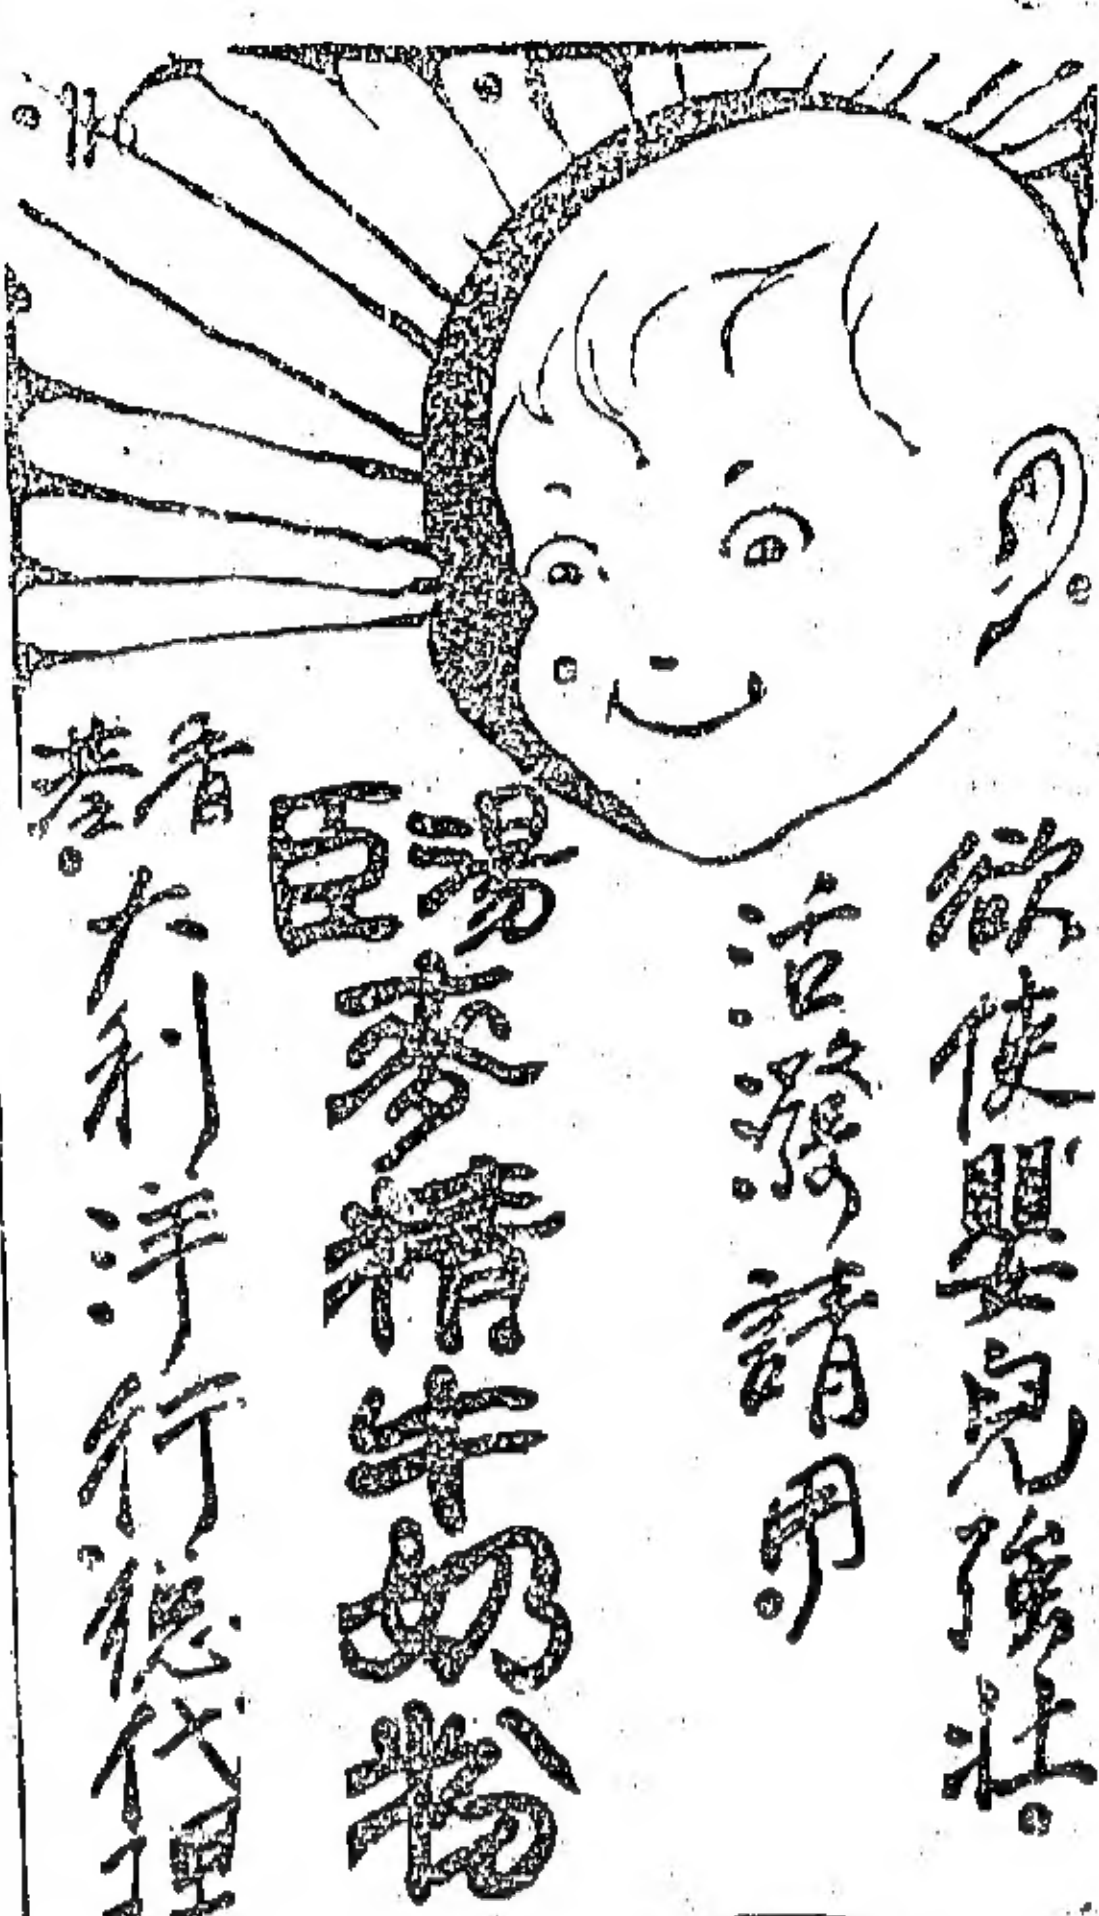 欲使嬰兒強壯
活潑請用
湯臣麥精牛奶粉
香港大利洋行總代理